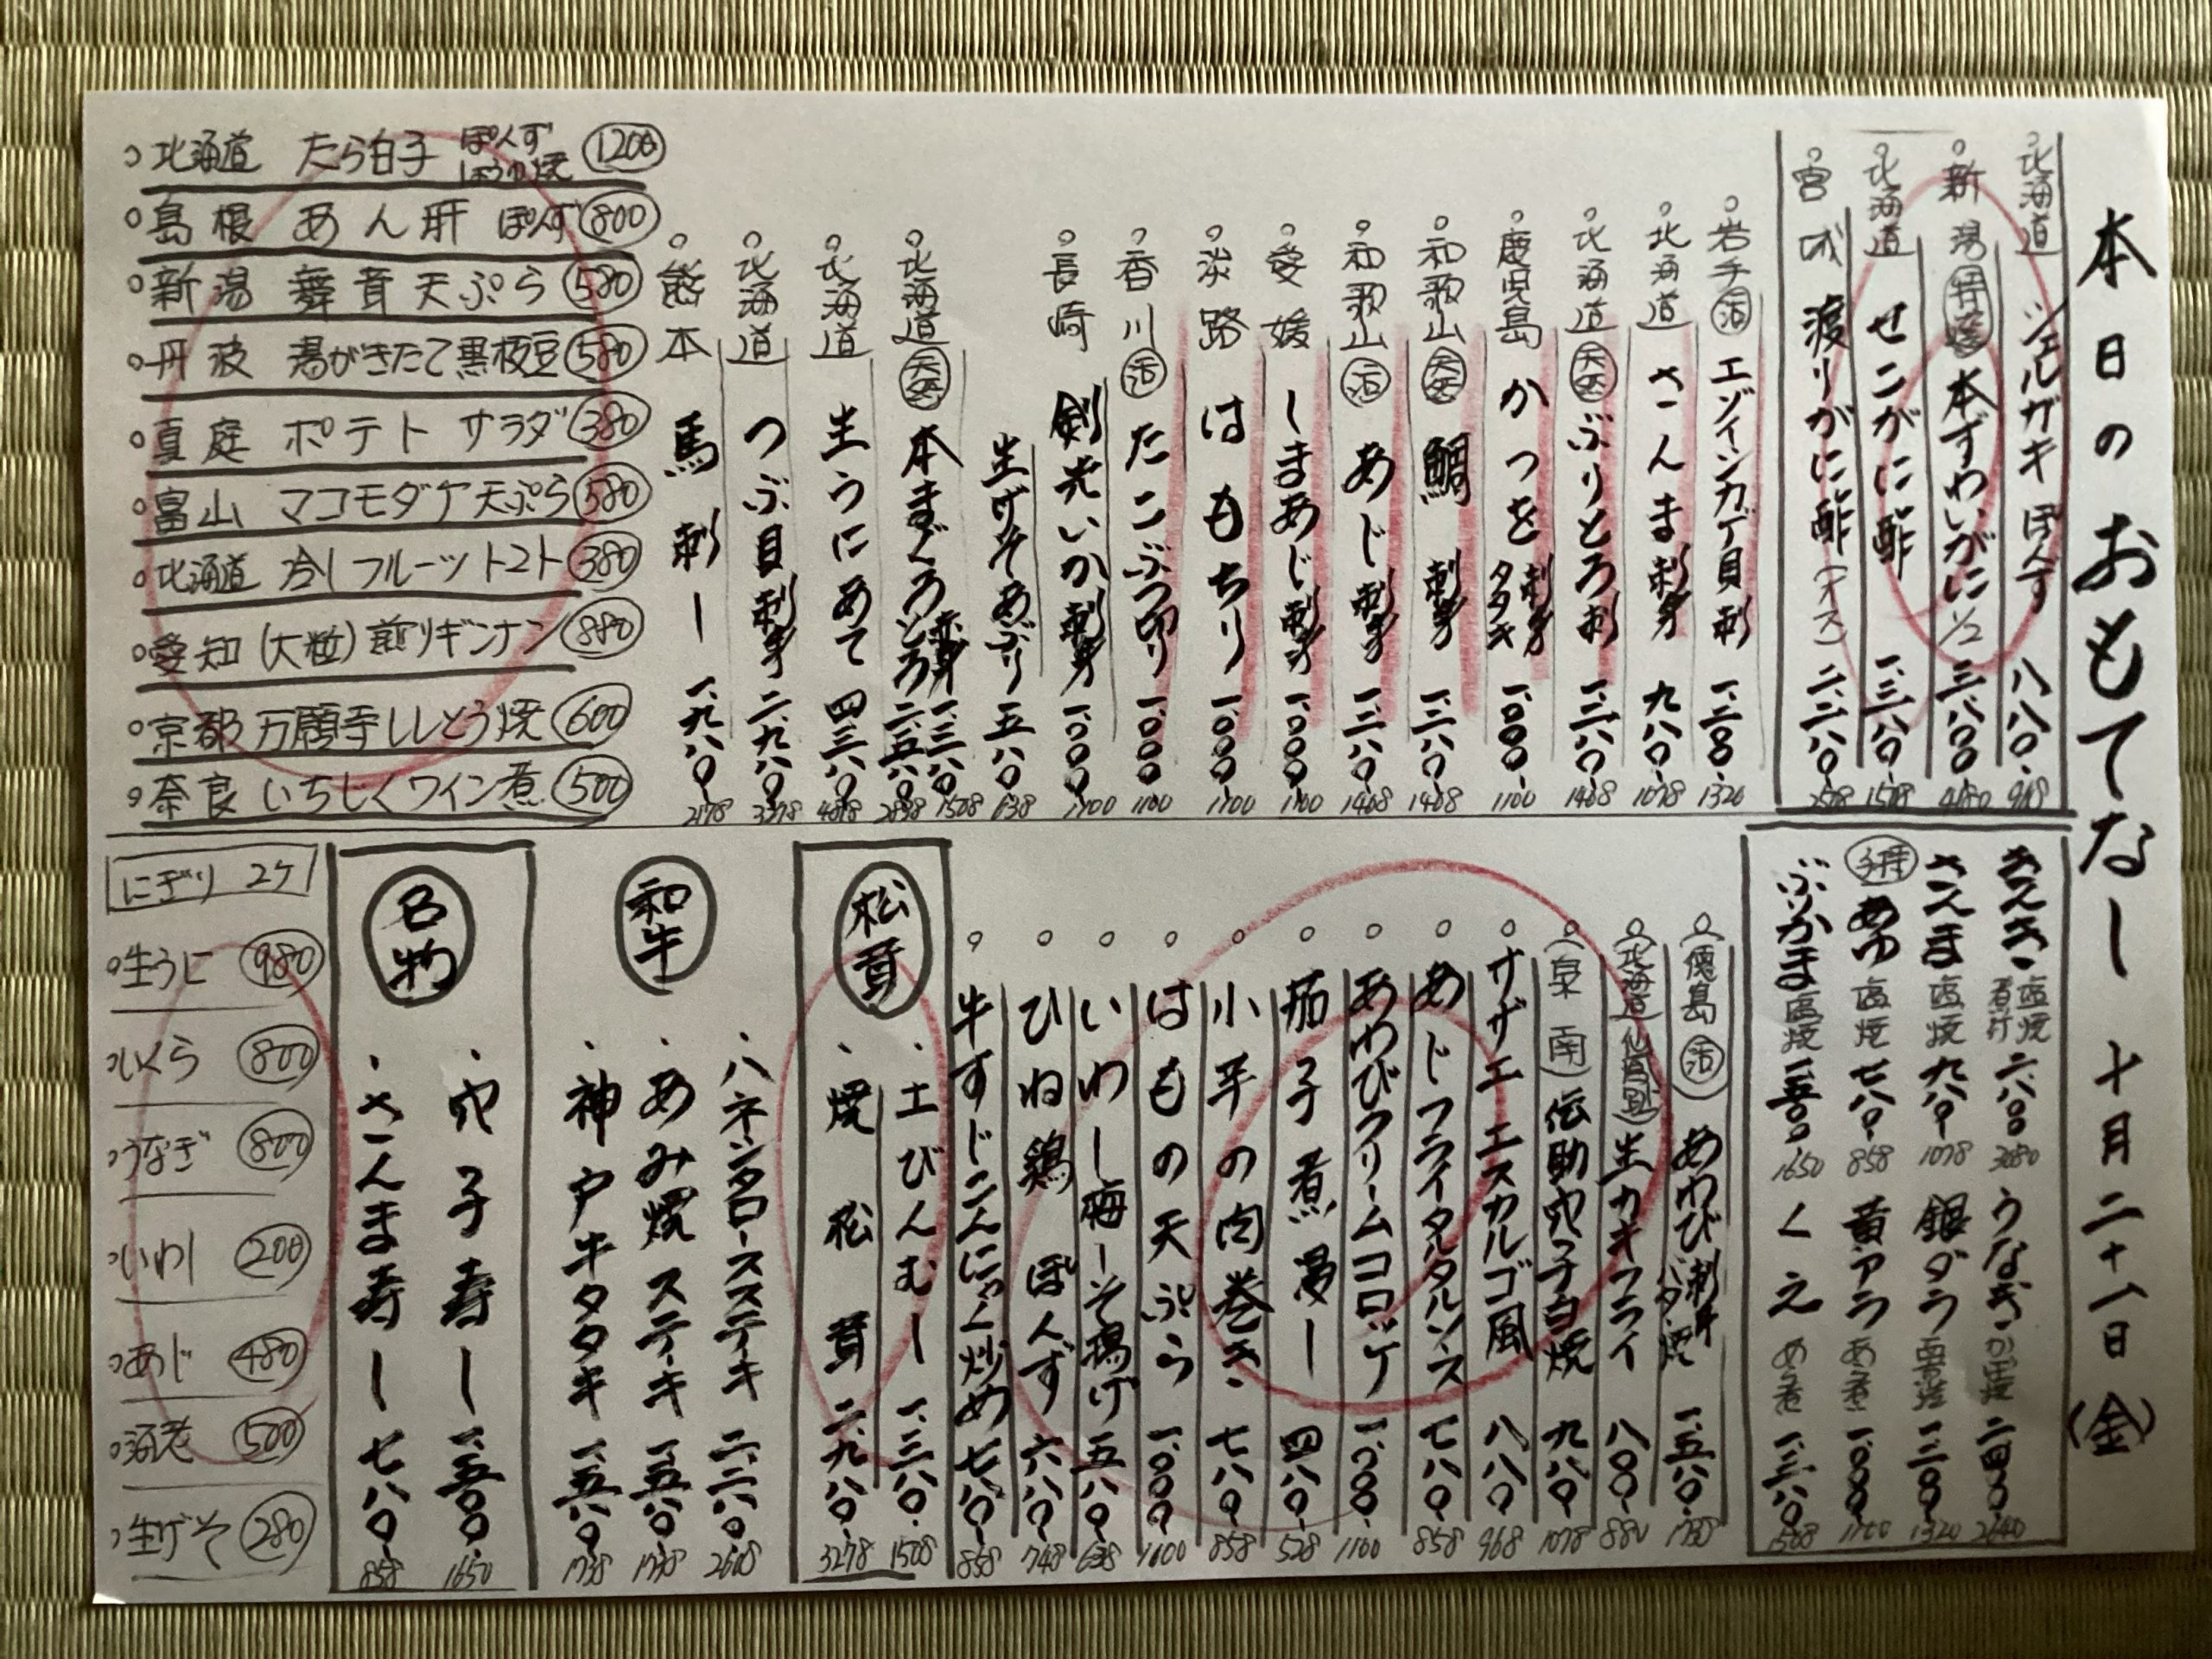 本日のおもてなし 十月二十八日(金)
北海道 シェルガキ ぽんず 八八〇 968
新潟 特選 本ずわいがに 1/2 三、八〇〇 4180
北海道 せこがに酢 一、三八〇 1518
宮城 渡りがに酢(オス) 二、二八〇
岩手 活 エゾイシカゲ貝刺 一、二〇〇 1320
北海道 さんま刺身 九八〇 1078
北海道 天然 ぶりとろ刺 一、二八〇 1408
鹿児島 かつを 刺身 タタキ 一、〇〇〇 1100
和歌山 天然 鯛 刺身 一、二八〇 1408
和歌山 活 あじ刺身 一、二八〇 1408
愛媛 しまあじ刺身 一、〇〇〇 1100
淡路 はもちり 一、〇〇〇 1100
香川 活 たこぶつ切り 一、〇〇〇 1100
長崎 剣光いか刺身 一、〇〇〇 1100
生げそあぶり 五八〇 638
北海道 天然 本まぐろ 赤身 一、三八〇 1508 とろ 二、五八〇 2838
北海道 生うにあて 四、三八〇 4818
北海道 つぶ貝刺身 二、九八〇 3278
熊本 馬刺し 一、九八〇 2178
北海道 たら白子 ぽんず しょうゆ焼 1200
島根 あん肝 ぽんず 800
新潟 舞茸天ぷら 580
丹波 湯がきたて黒枝豆 580
真庭 ポテトサラダ 380
富山 マコモダケ天ぷら 580
北海道 冷しフルーツトマト 380
愛知(大粒)煎りギンナン 880
京都 万願寺ししとう焼 600
奈良 いちじくワイン煮 500
塩焼 煮付 二、八〇〇 3080
さんま 塩焼 九八〇 1078
子持 あゆ 塩焼 七八〇 858
ぶりかま 塩焼 一、五〇〇 1650
うなぎ かば焼 二、四〇〇 2640
銀ダラ 西京焼 一、二〇〇 1320
黄アラ あら煮 一、〇〇〇 1100
くえ あら煮 一、三八〇 1508
(徳島 活)あわび 刺身 バター焼 一、五八〇 1738
(北海道 仙鳳趾)生カキフライ 八〇〇 880
(泉南)伝助穴子白焼 九八〇 1078
サザエ エスカルゴ風 八八〇 968
あじフライタルタルソース 七八〇 858
あわびクリームコロッケ 一、〇〇〇 1100
茄子煮浸し 四八〇 528
小芋の肉巻き 七八〇 858
はもの天ぷら 一、〇〇〇 1100
いわし梅しそ揚げ 五八〇 638
ひね鶏ぽんず 六八〇 748
牛すじこんにゃく炒め 七八〇 858
松茸
・土びんむし 一、三八〇 1508
・焼松茸 二、九八〇 3278
和牛
・ハネシタロースステーキ 二、二八〇 2508
・あみ焼ステーキ 一、五八〇 1738
・神戸牛タタキ 一、五八〇 1738
名物
・穴子寿し 一、五〇〇 1650
・さんま寿し 七八〇 858
にぎり 2ケ
生うに 980
いくら 800
うなぎ 800
いわし 200
あじ 480
海老 500
生げそ 280